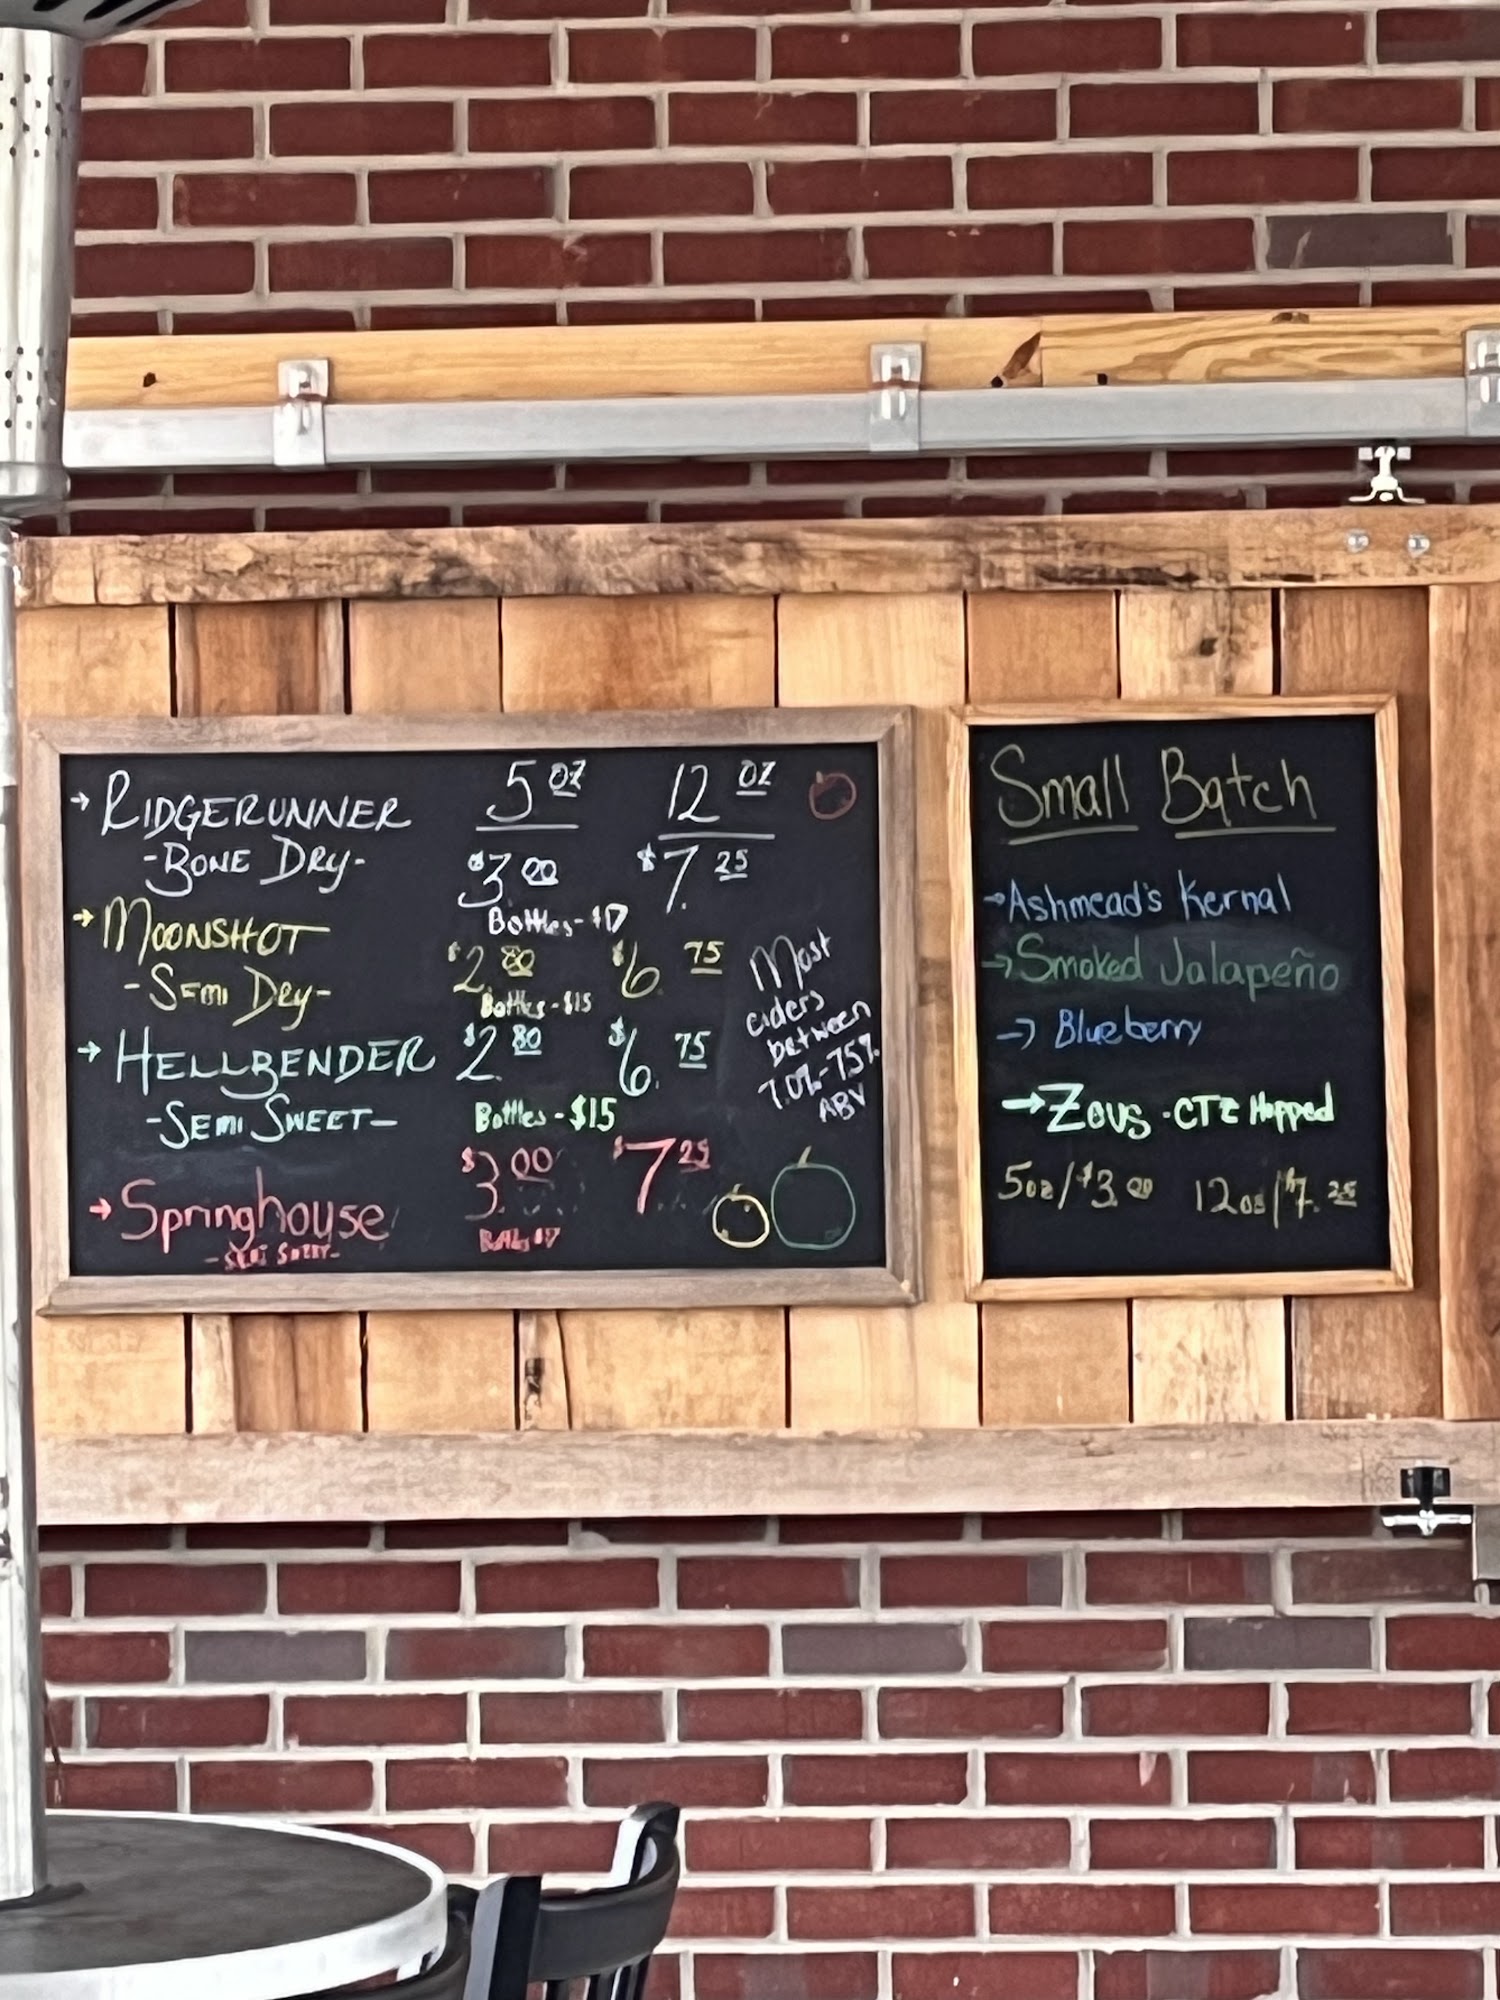 → RIDGERUNNER 5 oz 12 oz
-BONE DRY- $3.00 $7.25
Bottles - $17
→ MOONSHOT
-SEMI DRY- $2.80 $6.75
Bottles - $15
→ HELLBENDER $2.80 $6.75
-SEMI SWEET- Bottles - $15
→ Springhouse $3.00 $7.25
-SEMI SWEET-
Most
ciders
between
7.0%-7.5%
ABV
Small Batch
→ Ashmead's Kernal
→ Smoked Jalapeño
→ Blueberry
→ Zeus - CTZ Hopped
5oz/$3.00 12oz/$7.25